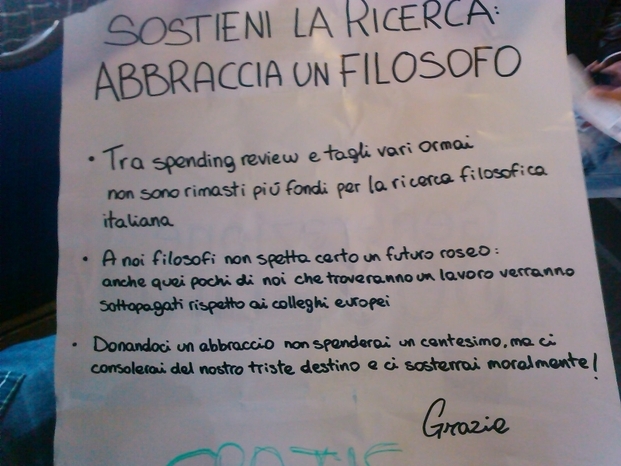 SOSTIENI LA RICERCA:
ABBRACCIA UN FILOSOFO
• Tra spending review e tagli vari ormai
non sono rimasti piú fondi per la ricerca filosofica
italiana
• A noi filosofi non spetta certo un futuro roseo:
anche quei pochi di noi che troveranno un lavoro verranno
sottopagati rispetto ai colleghi europei
• Donandoci un abbraccio non spenderai un centesimo, ma ci
consolerai del nostro triste destino e ci sosterrai moralmente!
Grazie